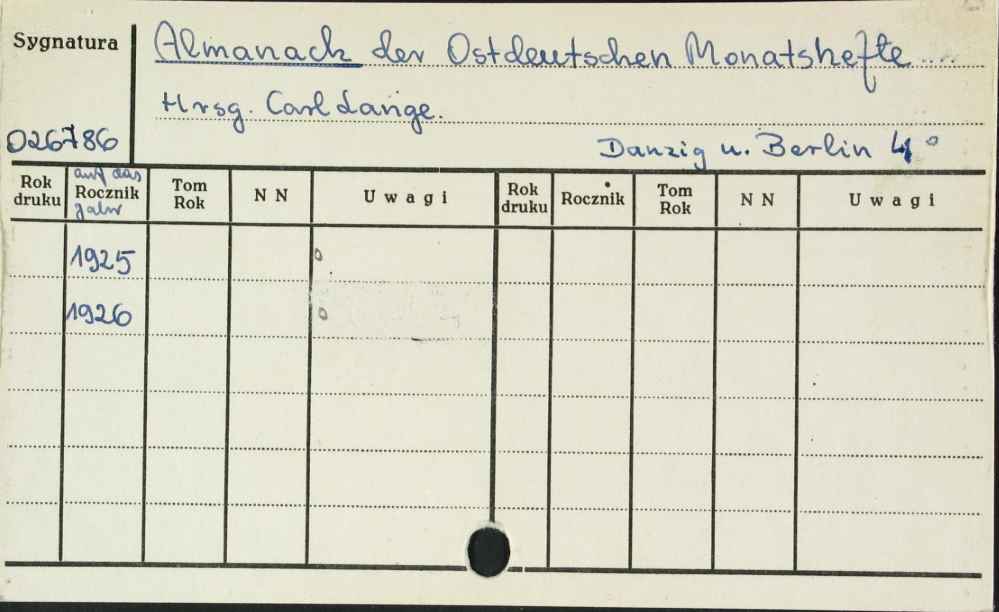 Sygnatura
Almanack der Ostdeutschen Monatshefte ....
Hrsg. Carl Lange.
026786
Danzig u. Berlin 4°
Rok druku auf das Rocznik Jahr Tom Rok N N Uwagi Rok druku Rocznik Tom Rok N N Uwagi
1925 o
1926 o